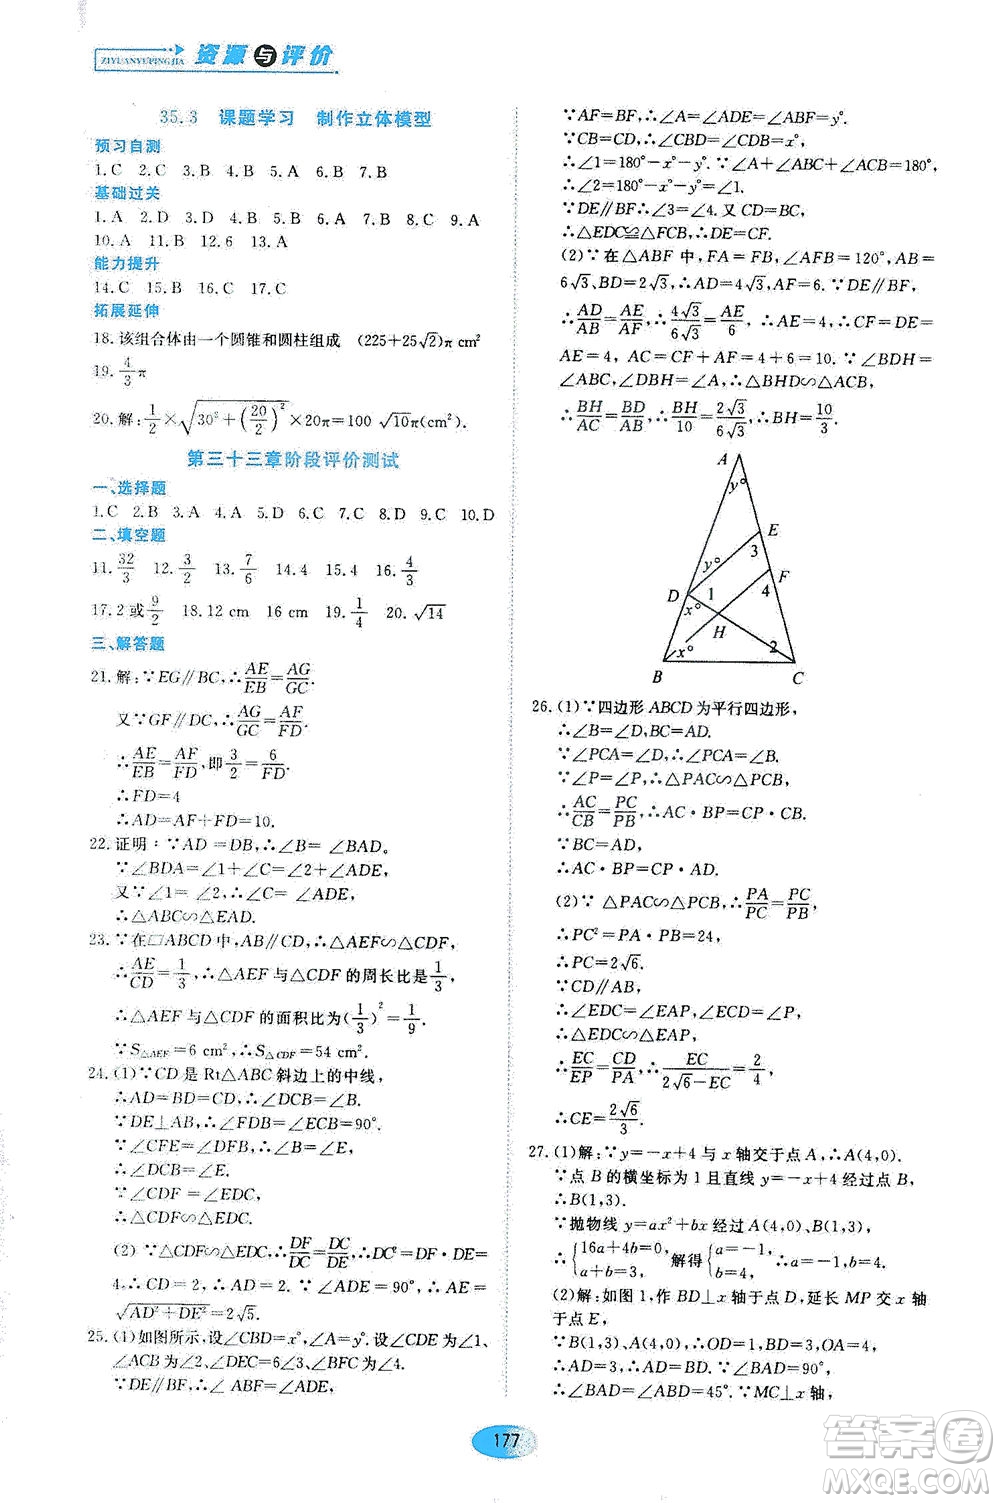 资源与评价
ZIYUANYUPINGJIA
35.3 课题学习 制作立体模型
预习自测
1.C 2.C 3.B 4.A 5.A 6.A 7.B
基础过关
1.A 2.D 3.D 4.B 5.B 6.A 7.B 8.C 9.A
10.A 11.B 12.6 13.A
能力提升
14.C 15.B 16.C 17.C
拓展延伸
18.该组合体由一个圆锥和圆柱组成 (225+25√2)π cm²
19. 4/3 π
20.解:1/2×√(30²+(20/2)²)×20π=100 √10π(cm²).
第三十三章阶段评价测试
一、选择题
1.C 2.B 3.A 4.A 5.D 6.D 7.A 8.C 9.C 10.D
二、填空题
11. 32/3 12. 3/2 13. 7/6 14.4 15.4 16. 4/3
17.2或9/2 18.12 cm 16 cm 19. 1/4 20.√14
三、解答题
21.解:∵EG∥BC,∴AE/EB=AG/GC.
又∵GF∥DC,∴AG/GC=AF/FD.
∴AE/EB=AF/FD,即3/2=6/FD.
∴FD=4
∴AD=AF+FD=10.
22.证明:∵AD=DB,∴∠B=∠BAD。
∵∠BDA=∠1+∠C=∠2+∠ADE.
又∵∠1=∠2,∴∠C=∠ADE.
∴△ABC∽△EAD.
23.∵在□ABCD中,AB∥CD,∴△AEF∽△CDF,
∴AE/CD=1/3,∴△AEF与△CDF的周长比是1/3,
∴△AEF与△CDF的面积比为(1/3)²=1/9.
∵S△AEF=6 cm²;∴S△CDF=54 cm².
24.(1)∵CD是Rt△ABC斜边上的中线,
∴AD=BD=CD,∴∠DCB=∠B.
∵DE⊥AB,∴∠FDB=∠ECB=90°.
∵∠CFE=∠DFB,∴∠B=∠E.
∴∠DCB=∠E.
∵∠CDF=∠EDC,
∴△CDF∽△EDC.
(2)∵△CDF∽△EDC,∴DF/DC=DC/DE,∴DC²=DF·DE=
4,∴DC=2,∴AD=2.∵∠ADE=90°,∴AE=
√(AD²+DE²)=2√5.
25.(1)如图所示,设∠CBD=x°,∠A=y°.设∠CDE为∠1、
∠ACB为∠2、∠DEC=6∠3、∠BFC为∠4.
∵DE∥BF,∴∠ADE=∠ABF=y°,
∵AF=BF,∴∠A=∠ADE=∠ABF=y°.
∵CB=CD,∴∠CBD=∠CDB=x°,
∴∠1=180°-x°-y°.∵∠A+∠ABC+∠ACB=180°,
∴∠2=180°-x°-y°=∠1.
∵DE∥BF∴∠3=∠4.又CD=BC,
∴△EDC≌△FCB,∴DE=CF.
(2)∵在△ABF中,FA=FB,∠AFB=120°,AB=
6√3,BD=2√3,∴AD=4√3,AF=6.∵DE∥BF,
∴AD/AB=AE/AF,∴4√3/6√3=AE/6,∴AE=4,∴CF=DE=
AE=4,AC=CF+AF=4+6=10.∵∠BDH=
∠ABC,∠DBH=∠A,∴△HDB∽△ACB,
∴BH/AC=BD/AB,∴BH/10=2√3/6√3,∴BH=10/3.
A
y°
E
3
y°
F
D
1
4
x°
H
x°
2
B
C
26.(1)∵四边形ABCD为平行四边形,
∴∠B=∠D,BC=AD.
∵∠PCA=∠D,∴∠PCA=∠B.
∵∠P=∠P,∴△PAC∽△PCB,
∴AC/CB=PC/PB,∴AC·BP=CP·CB.
∵BC=AD,
∴AC·BP=CP·AD.
(2)∵△PAC∽△PCB,∴PA/PC=PC/PB,
∴PC²=PA·PB=24,
∴PC=2√6.
∵CD∥AB,
∴∠EDC=∠EAP,∠ECD=∠P,
∴△EDC∽△EAP,
∴EC/EP=CD/PA,∴EC/(2√6-EC)=2/4,
∴CE=2√6/3.
27.(1)解:∵y=-x+4与x轴交于点A,∴A(4,0).
∵点B的横坐标为1且直线y=-x+4经过点B,
∴B(1,3).
∵抛物线y=ax²+bx经过A(4,0)、B(1,3),
∴{16a+4b=0, a+b=3, 解得{a=-1, b=4, ∴a=-1,b=4.
(2)解:如图1,作BD⊥x轴于点D,延长MP交x轴
于点E,
∵B(1,3),A(4,0),∴OD=1,BD=3,OA=4,
∴AD=3,∴AD=BD.∵∠BDA=90°,
∴∠BAD=∠ABD=45°.∵MC⊥x轴,
177
答案圈
MXQE.COM